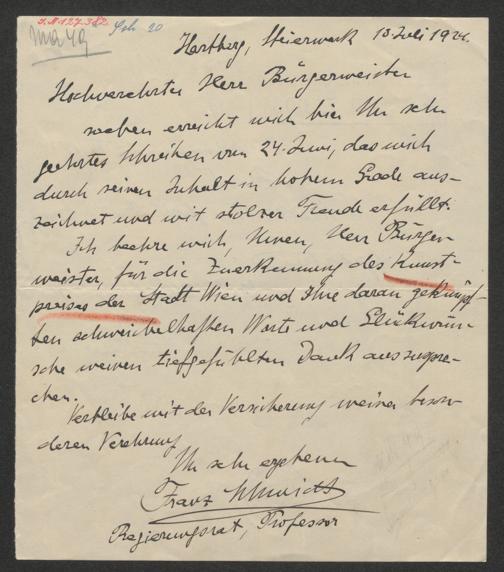 J.N. 127.382 Sch. 20
Hartberg, Steiermark 10 Juli 192
Hochverehrter Herr Bürgermeister
soeben erreicht mich hier Ihr sehr
geehrtes Schreiben vom 24. Juni, das mich
durch seinen Inhalt in hohem Grade aus-
zeichnet und mit stolzer Freude erfüllt.
Ich beehre mich, Ihnen, Herr Bürger-
meister, für die Zuerkennung des Kunst-
preises der Stadt Wien und Ihre daran geknüpf-
ten schmeichelhaften Worte und Glückwün-
sche meinen tiefgefühlten Dank auszuspre-
chen.
Verbleibe mit der Versicherung meiner beson
deren Verehrung
Ihr sehr ergebener
Franz Schmidt
Regierungsrat, Professor